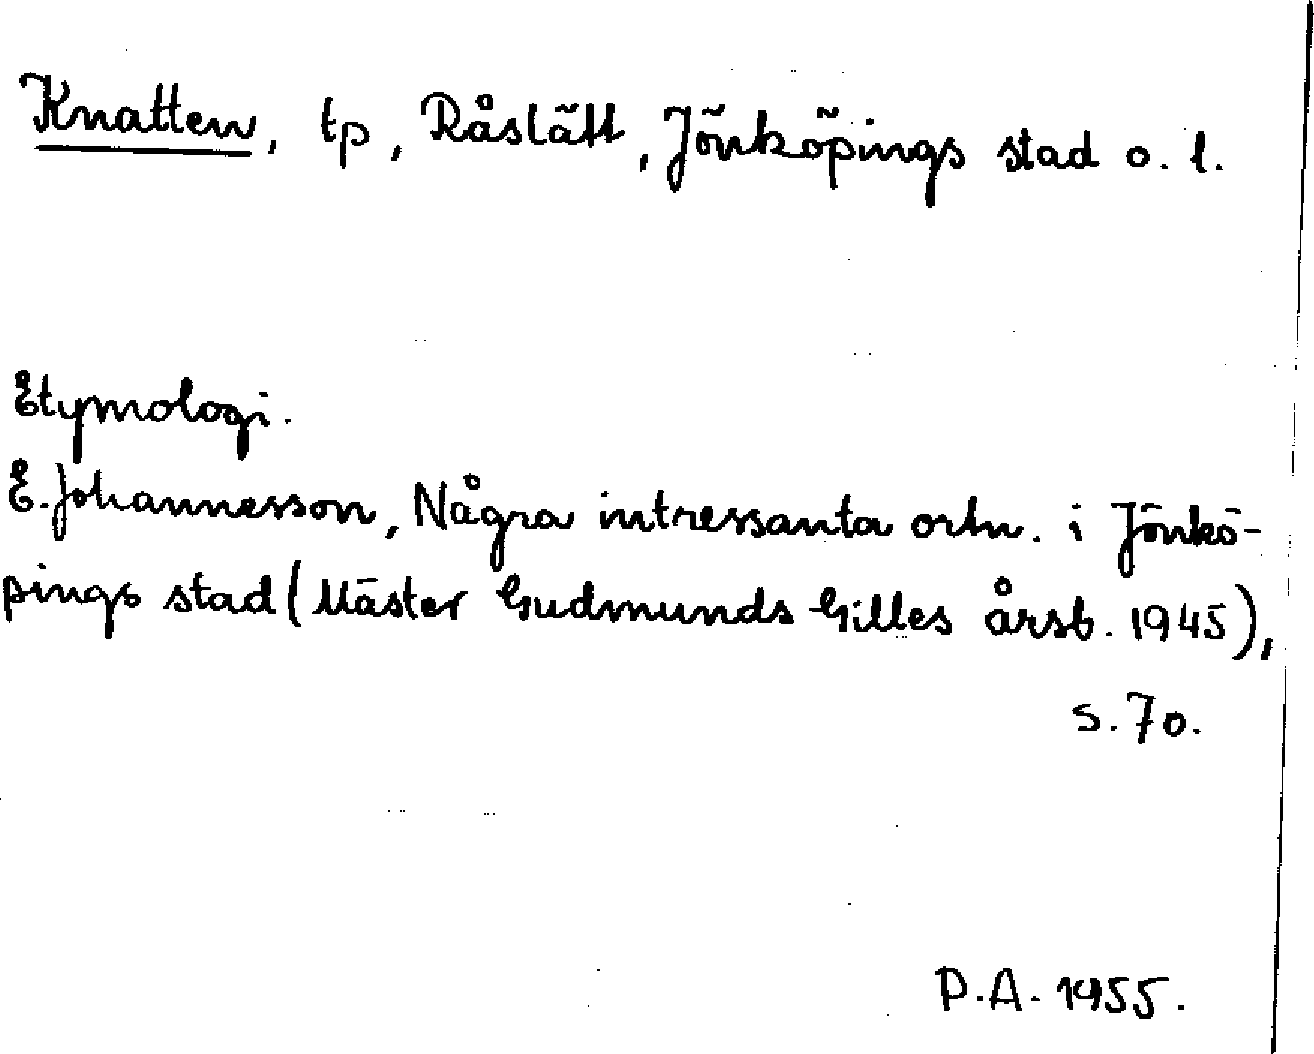 Knatten, tp, Råslätt, Jönköpings stad o. l.
Etymologi.
E. Johannesson, Några intressanta ortn. i Jönkö-
pings stad (Mäster Gudmunds Gilles årsb. 1945),
s. 70.
P.A. 1955.